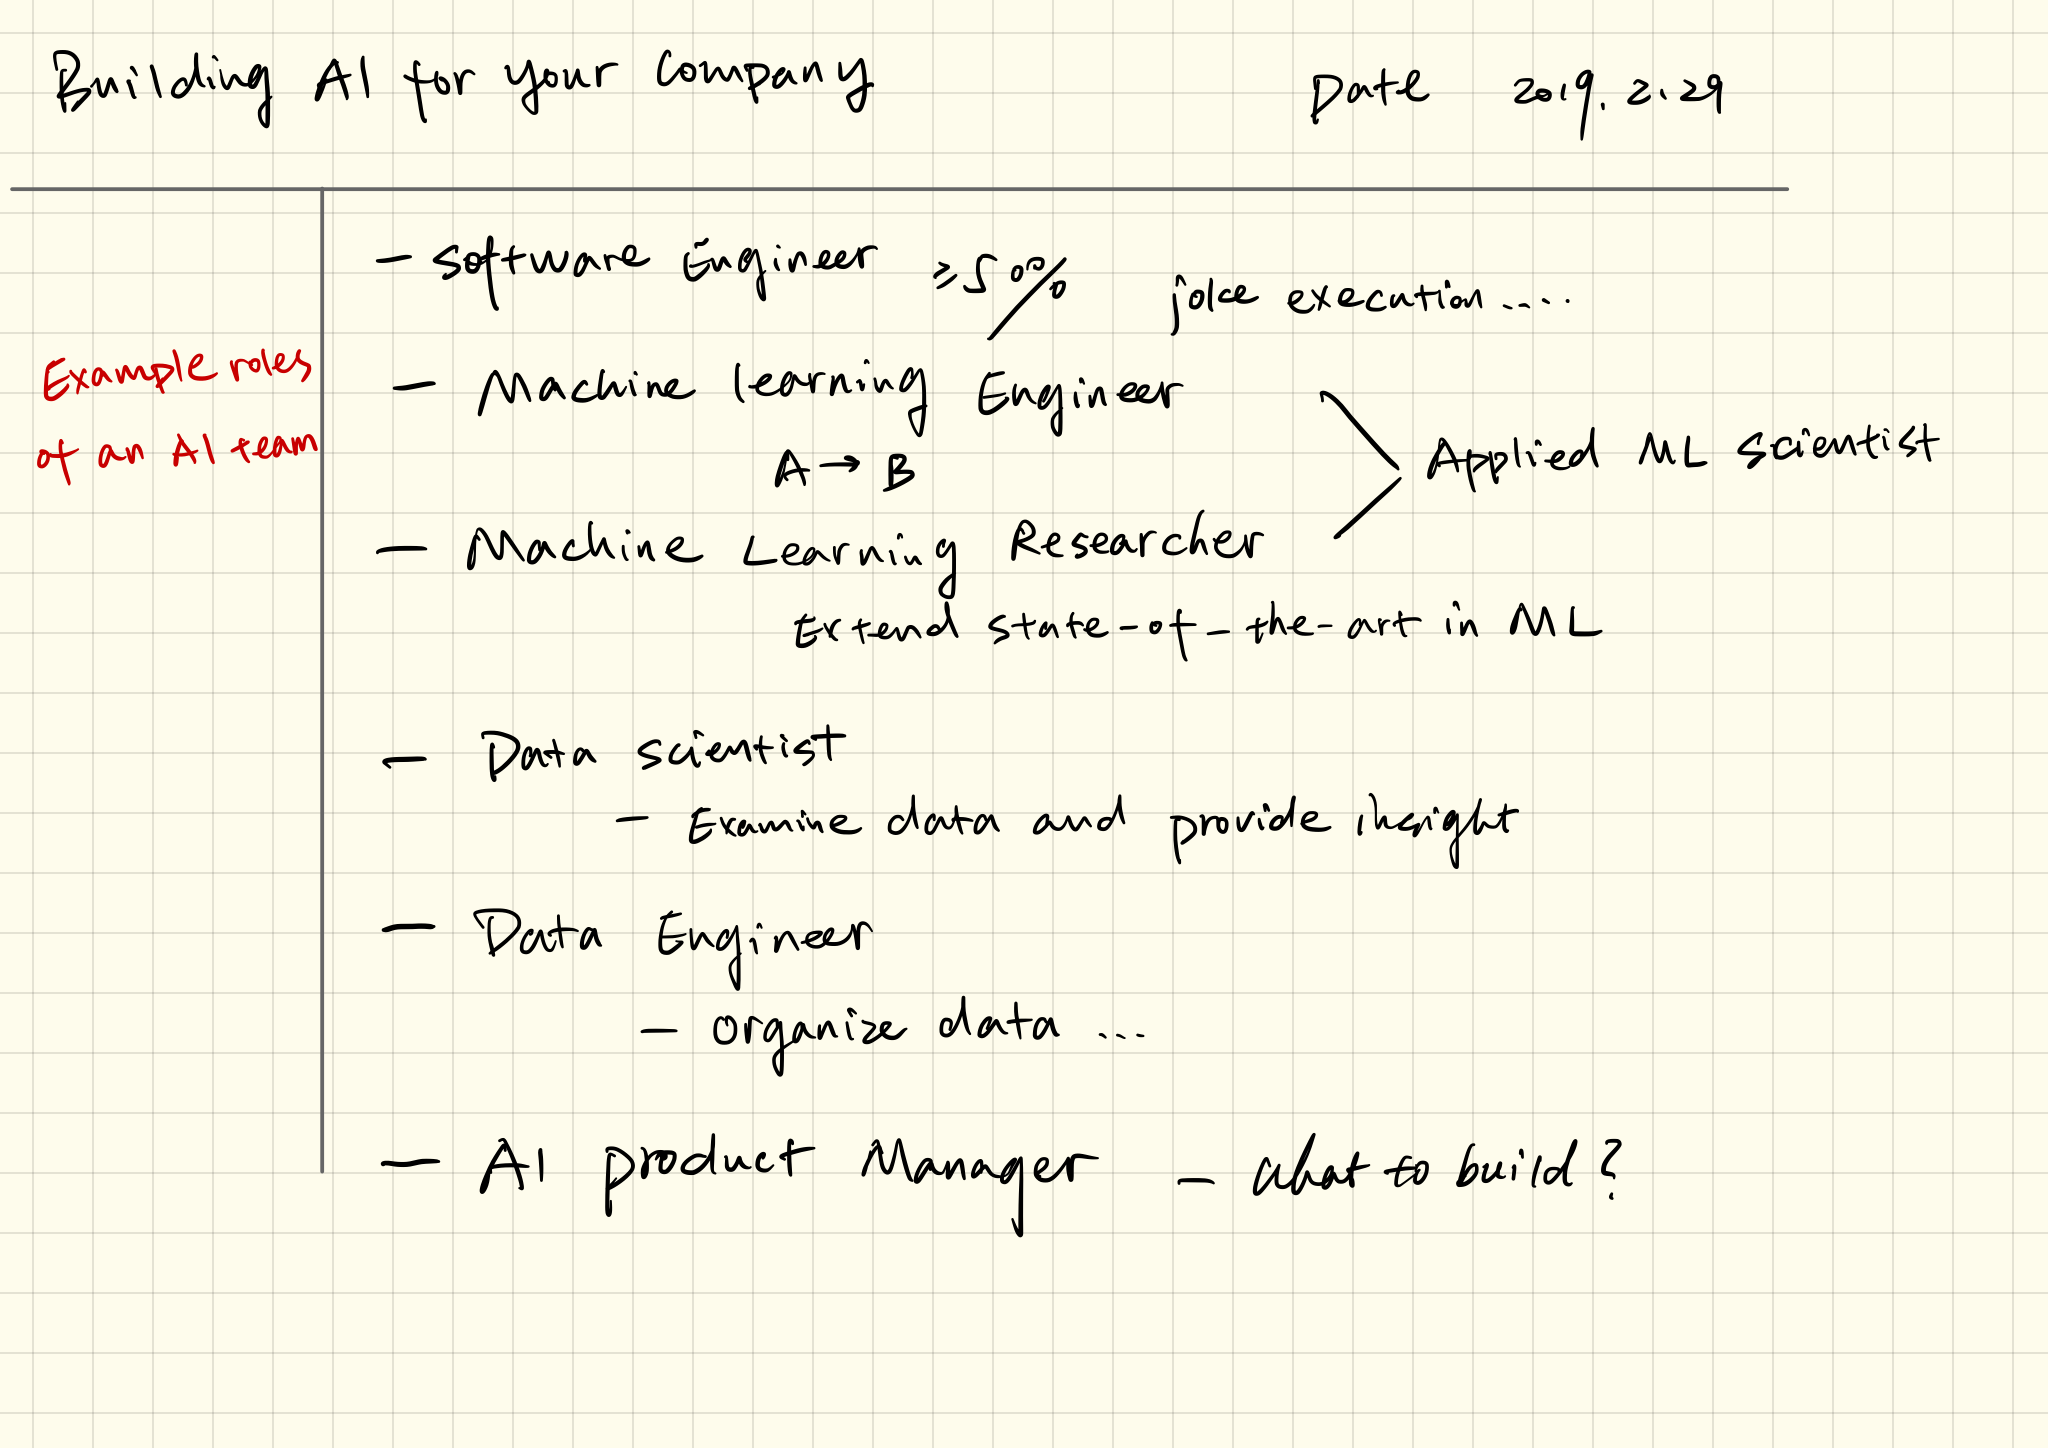 Building AI for your company
Date 2019.2.29
Example roles
of an AI team
- software Engineer ≥50% joke execution.....
- Machine learning Engineer
A → B
Applied ML scientist
- Machine Learning Researcher
Extend state-of-the-art in ML
- Data scientist
- Examine data and provide insight
- Data Engineer
- organize data ...
- AI product Manager - what to build?